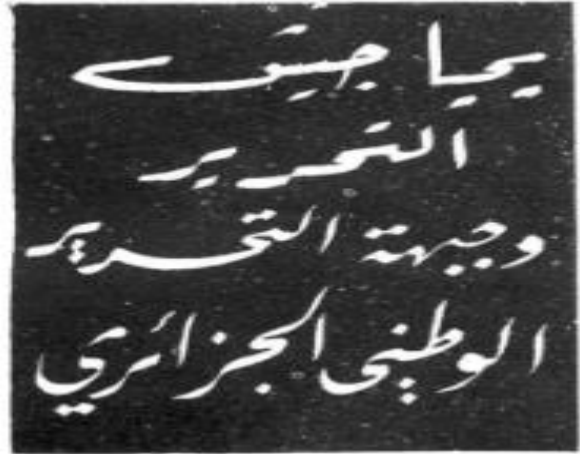 يحيا جيش
التحرير
وجبهة التحرير
الوطني الجزائري